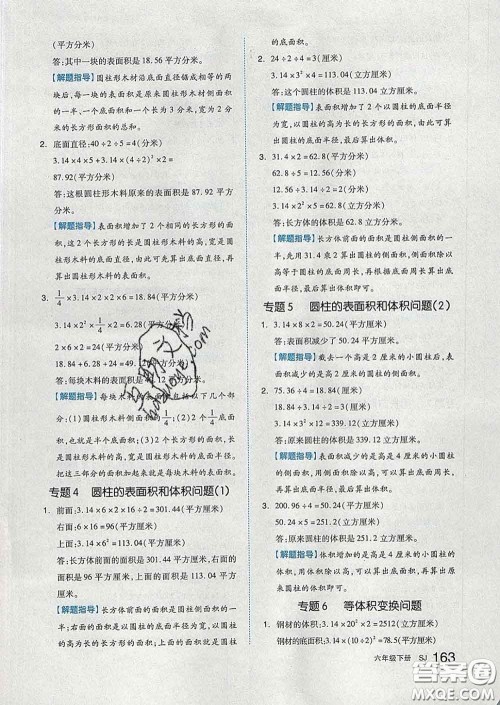 (平方分米)
答:其中一块的表面积是 18.56 平方分米。
【解题指导】圆柱形木材沿底面直径锯成相等的两块后,每一块的表面积是原来圆柱形木材侧面积的一半、一个底面积和一个长为 3 分米、宽为 2 分米的长方形面积的总和。
2. 底面直径:40÷2÷5=4(分米)
3.14×4×5+3.14×(4÷2)²×2=
87.92(平方分米)
答:这根圆柱形木料原来的表面积是 87.92 平方分米。
【解题指导】表面积增加了 2 个相同的长方形的面积,这 2 个长方形的长是圆柱形木料的高,宽是圆柱形木料的底面直径,据此算出底面直径,再算出圆柱形木料的表面积。
3. 1/4×3.14×2×2×6=18.84(平方分米)
3.14×2²×1/4×2=6.28(平方分米)
2×6×2=24(平方分米)
18.84+6.28+24=49.12(平方分米)
答:每块木料的表面积是 49.12 平方分米。
【解题指导】每块木料的表面积包括以下几个部分:(1)圆柱形木料侧面积的 1/4;(2)2 个 1/4 底面积,也就是半个底面积;(3)2 个长方形的面积,长是圆柱形木料的高,宽是圆柱形木料的底面半径。把这三部分的面积加起来就是每块木料的表面积。
专题 4 圆柱的表面积和体积问题(1)
1. 前面:3.14×6×2×16÷2=301.44(平方厘米)
右面:16×6=96(平方厘米)
上面:3.14×6²=113.04(平方厘米)
答:前面的面积是 301.44 平方厘米,右面的面积是 96 平方厘米,上面的面积是 113.04 平方厘米。
【解题指导】长方体前面的面积是圆柱侧面积的一半,右面的面积是圆柱的高与底面半径的乘积,上面的面积等于圆柱
的底面积。
2. 24÷2÷4=3(厘米)
3.14×3²×4=113.04(立方厘米)
答:这个圆柱的体积是 113.04 立方厘米。
【解题指导】表面积增加了 2 个以圆柱的底面半径为宽、以圆柱的高为长的长方形的面积,由此可算出底面半径,最后算出圆柱的体积。
3. 31.4×2=62.8(平方厘米)
62.8÷5=12.56(厘米)
12.56÷3.14÷2=2(厘米)
3.14×2²×5=62.8(立方厘米)
答:长方体的体积是 62.8 立方厘米。
【解题指导】长方体前面的面积是圆柱侧面积的一半,先用 31.4 乘 2 算出圆柱的侧面积,侧面积除以高等于圆柱的底面周长,据此算出底面半径,最后算出体积。
专题 5 圆柱的表面积和体积问题(2)
1. 3.14×2×8=50.24(平方厘米)
答:表面积减少了 50.24 平方厘米。
【解题指导】截去一个高是 2 厘米的小圆柱后,底面积不变,表面积减少的是高为 2 厘米的小圆柱的侧面积。
2. 75.36÷4=18.84(厘米)
18.84÷3.14÷2=3(厘米)
3.14×3²×12=339.12(立方厘米)
答:原来圆柱的体积是 339.12 立方厘米。
【解题指导】表面积减少的是高是 4 厘米的圆柱的侧面积。用侧面积除以高,求出底面周长,再求出底面半径,最后算出圆柱的体积。
3. 200.96÷4=50.24(平方厘米)
50.24×5=251.2(立方厘米)
答:原来圆柱的体积是 251.2 立方厘米。
【解题指导】体积增加的是高是 4 厘米的小圆柱的体积,用体积除以高,可算出底面积,再用底面积乘高算出圆柱的体积。
专题 6 等体积变换问题
1. 钢材的体积:3.14×20²×2=2512(立方厘米)
钢材的底面积:3.14×10²÷2=50.24(平方厘米)
六年级下册 SJ 163
答案圈
MXQE.COM